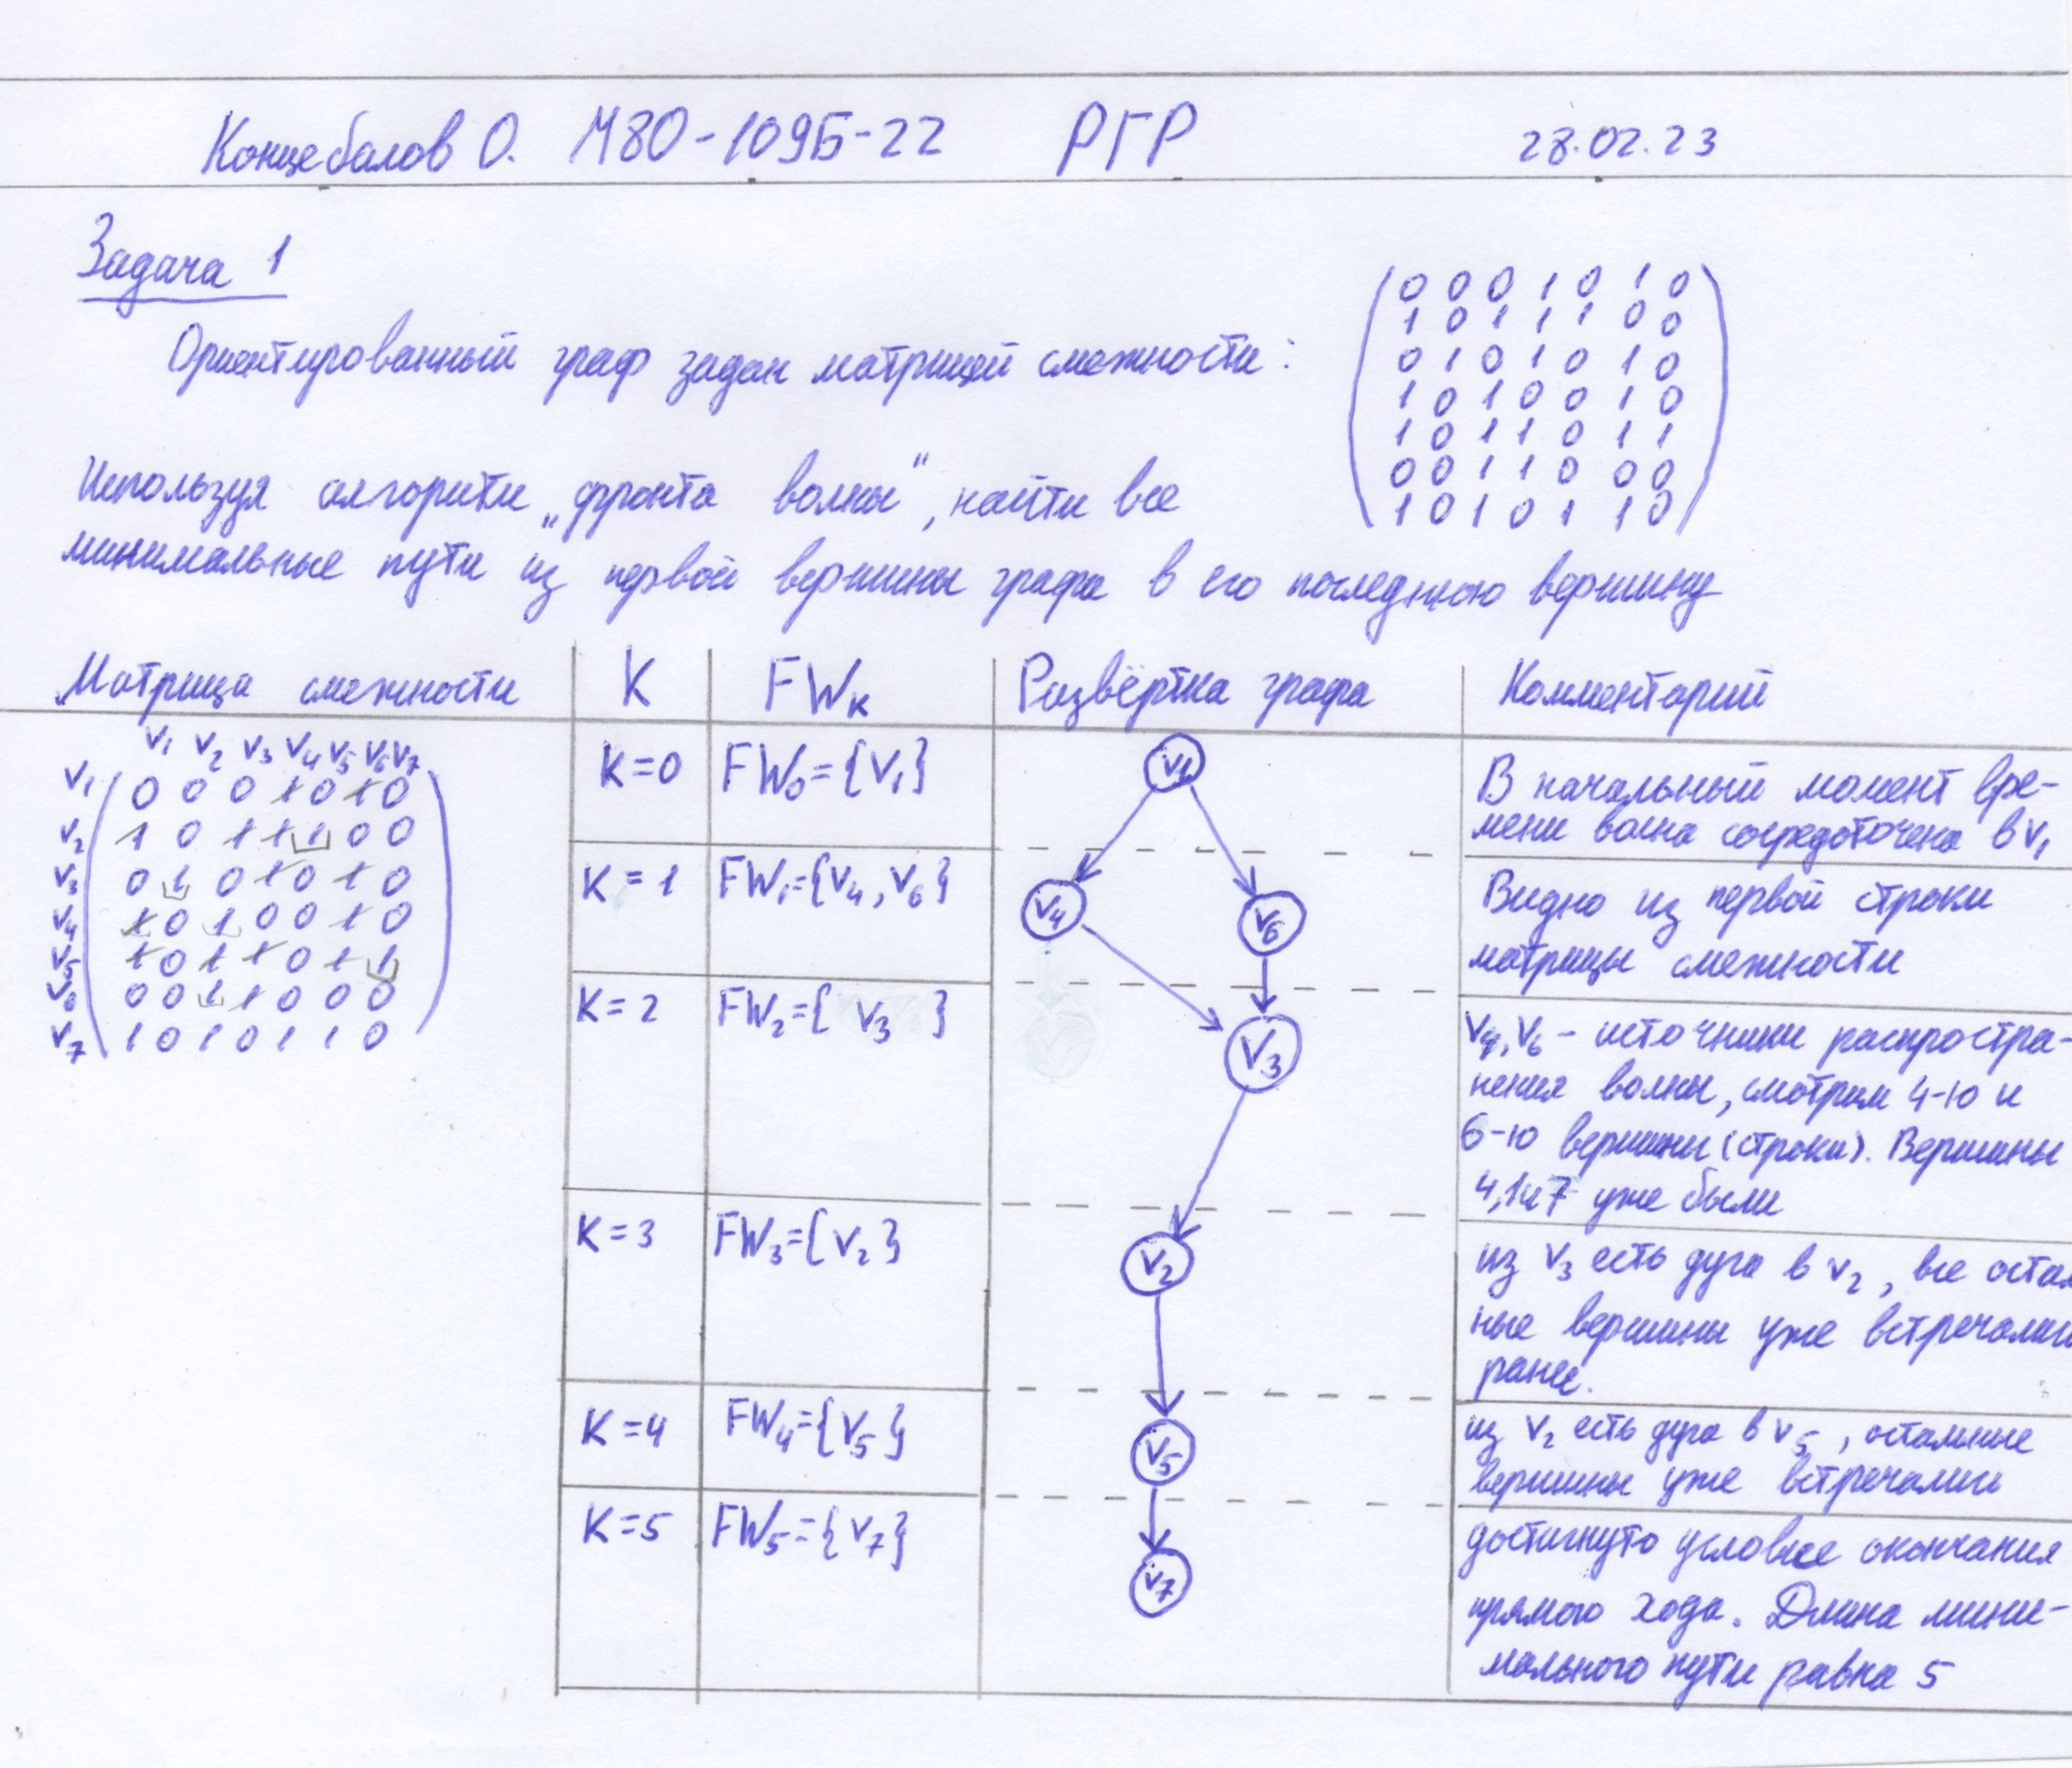 Концебалов О. М80-109Б-22 РГР 28.02.23
Задача 1
Ориентированный граф задан матрицей смежности:
0 0 0 1 0 1 0
1 0 1 1 1 0 0
0 1 0 1 0 1 0
1 0 1 0 0 1 0
1 0 1 1 0 1 1
0 0 1 1 0 0 0
1 0 1 0 1 1 0
Используя алгоритм „фронта волны", найти все
минимальные пути из первой вершины графа в его последнюю вершину
Матрица смежности K FWк Развёртка графа Комментарий
V1 V2 V3 V4 V5 V6 V7
V1 0 0 0 1 0 1 0
V2 1 0 1 1 1 0 0
V3 0 1 0 1 0 1 0
V4 1 0 1 0 0 1 0
V5 1 0 1 1 0 1 1
V6 0 0 1 1 0 0 0
V7 1 0 1 0 1 1 0
K=0 FW0={V1}
V1
В начальный момент вре-
мени волна сосредоточена в V1
K=1 FW1={V4, V6}
V4 V6
Видно из первой строки
матрицы смежности
K=2 FW2={ V3 }
V3
V4, V6 - источники распростра-
нения волны, смотрим 4-ю и
6-ю вершины (строки). Вершины
4,1и7 уже были
K=3 FW3={V2}
V2
из V3 есть дуга в V2, все остал
ные вершины уже встречались
ранее.
K=4 FW4={V5}
V5
из V2 есть дуга в V5, остальные
вершины уже встречались
K=5 FW5={V7}
V7
достигнуто условие окончания
прямого хода. Длина мини-
мального пути равна 5